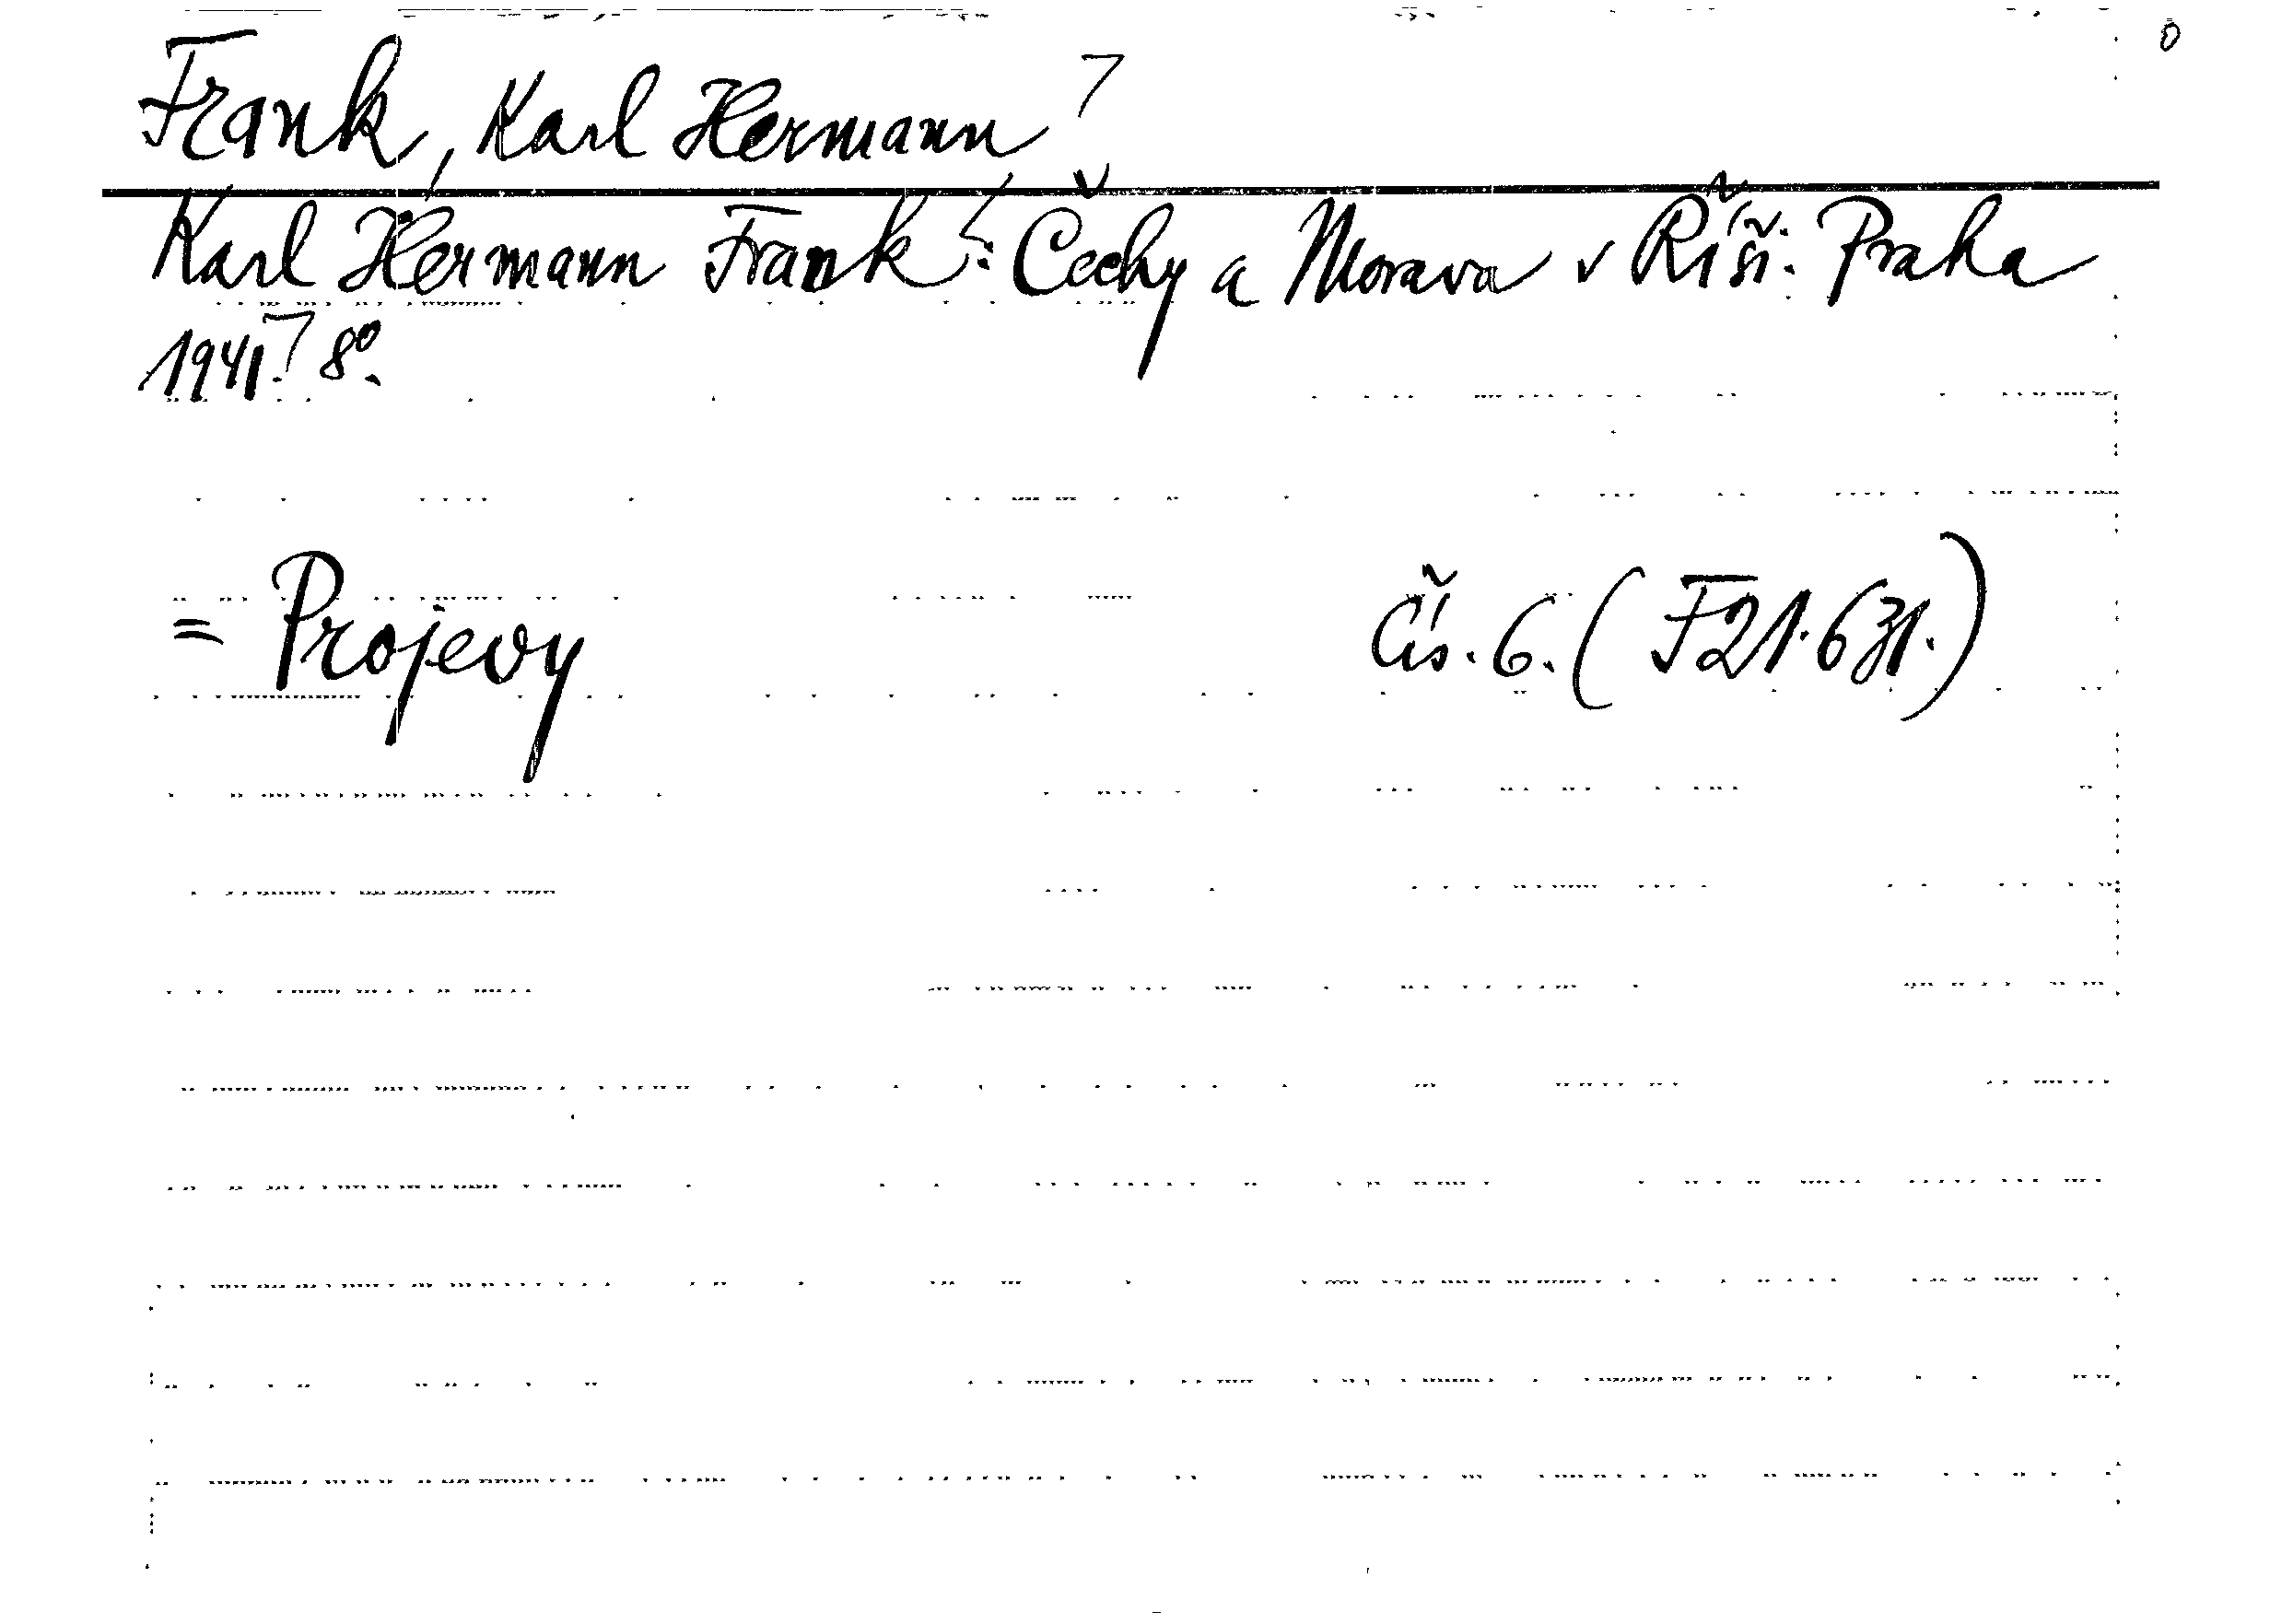 Frank, Karl Hermann
Karl Hermann Frank: Čechy a Morava v Říši. Praha
1941. 8°.
= Projevy Čís. 6. (F21.631.)